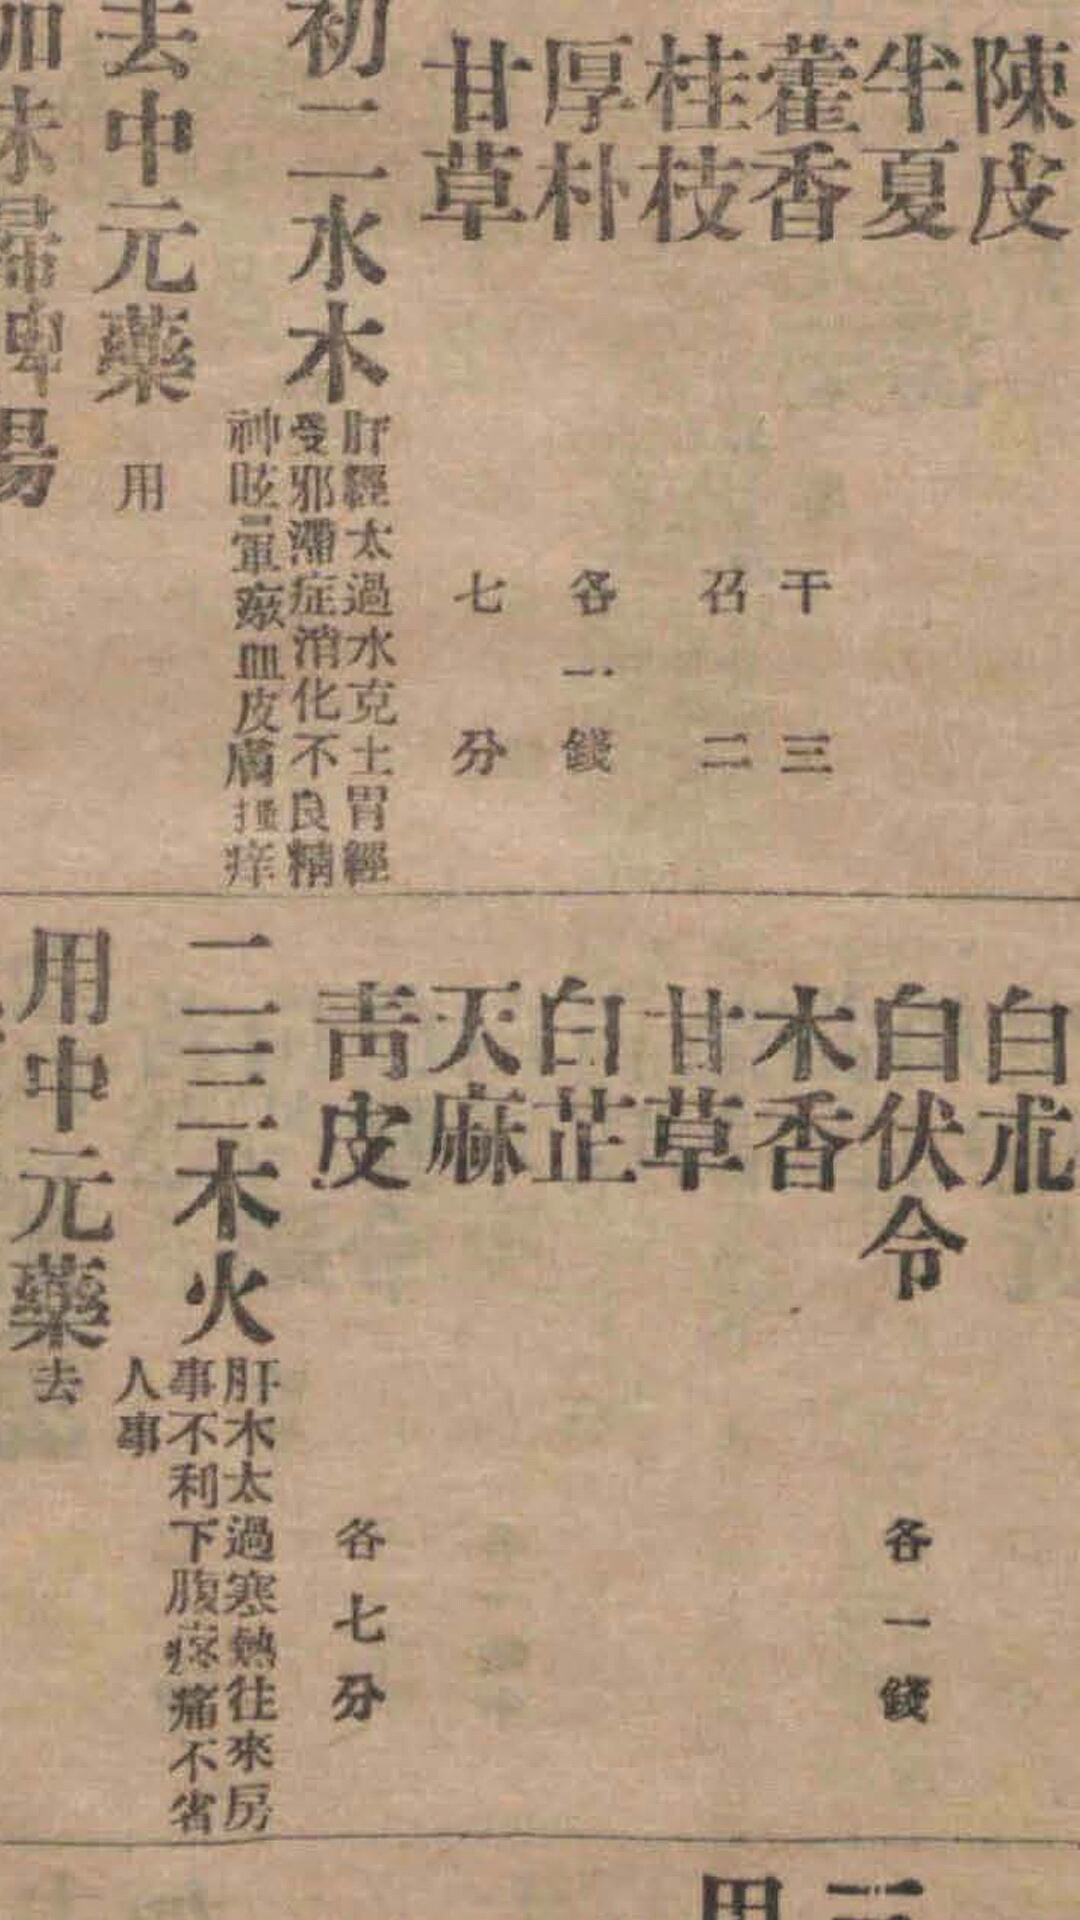 陳皮
半夏
藿香
桂枝
厚朴
甘草
干三
召二
各一錢
七分
初二 水木
肝經太過水克土胃經
受邪滯症消化不良精
神眩暈瘢血皮膚搔痒
去中元藥 用
加味
湯
白朮
白伏令
木香
甘草
白芷
天麻
靑皮
各一錢
各七分
二三 木火
肝木太過寒熱往來房
事不利下腹疼痛不省
人事
用中元藥 去